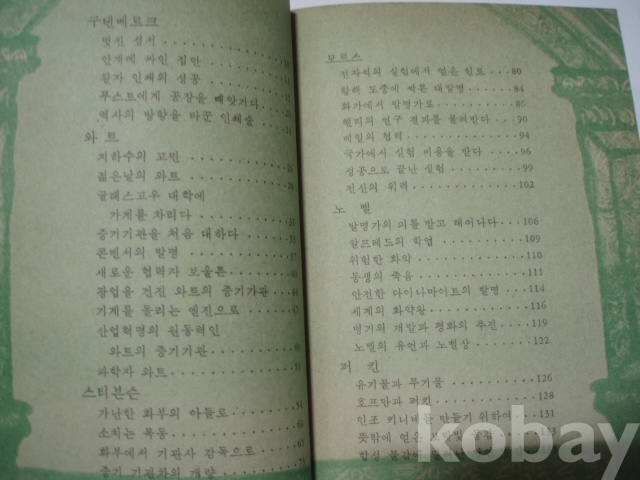 구텐베르크
멋진 성서
안개에 싸인 집안
활자 인쇄의 성공
푸스트에게 공장을 빼앗기다
역사의 방향을 바꾼 인쇄술
와 트
지하수의 고민
젊은날의 와트
글래스고우 대학에
가게를 차리다
증기기관을 처음 대하다
콘덴서의 발명
새로운 협력자 보울튼
광업을 건진 와트의 증기기관
기계를 돌리는 엔진으로
산업혁명의 원동력인
와트의 증기기관
과학자 와트
스티븐슨
가난한 화부의 아들로
소치는 목동
화부에서 기관사 감독으로
증기 기관차의 개량
모르스
전자석의 실험에서 얻은 힌트 80
항해 도중에 싹튼 대발명 84
화가에서 발명가로 86
헨리의 연구 결과를 물려받다 90
베일의 협력 94
국가에서 실험 비용을 받다 96
성공으로 끝난 실험 99
전신의 위력 102
노 벨
발명가의 피를 받고 태어나다 106
알프레드의 학업 109
위험한 화약 110
동생의 죽음 111
안전한 다이나마이트의 발명 114
세계의 화약왕 116
병기의 개발과 평화의 추진 119
노벨의 유언과 노벨상 122
퍼 킨
유기물과 무기물 126
호프만과 퍼킨 128
인조 키니네를 만들기 위하여 131
뜻밖에 얻은
합성 물감
kobay